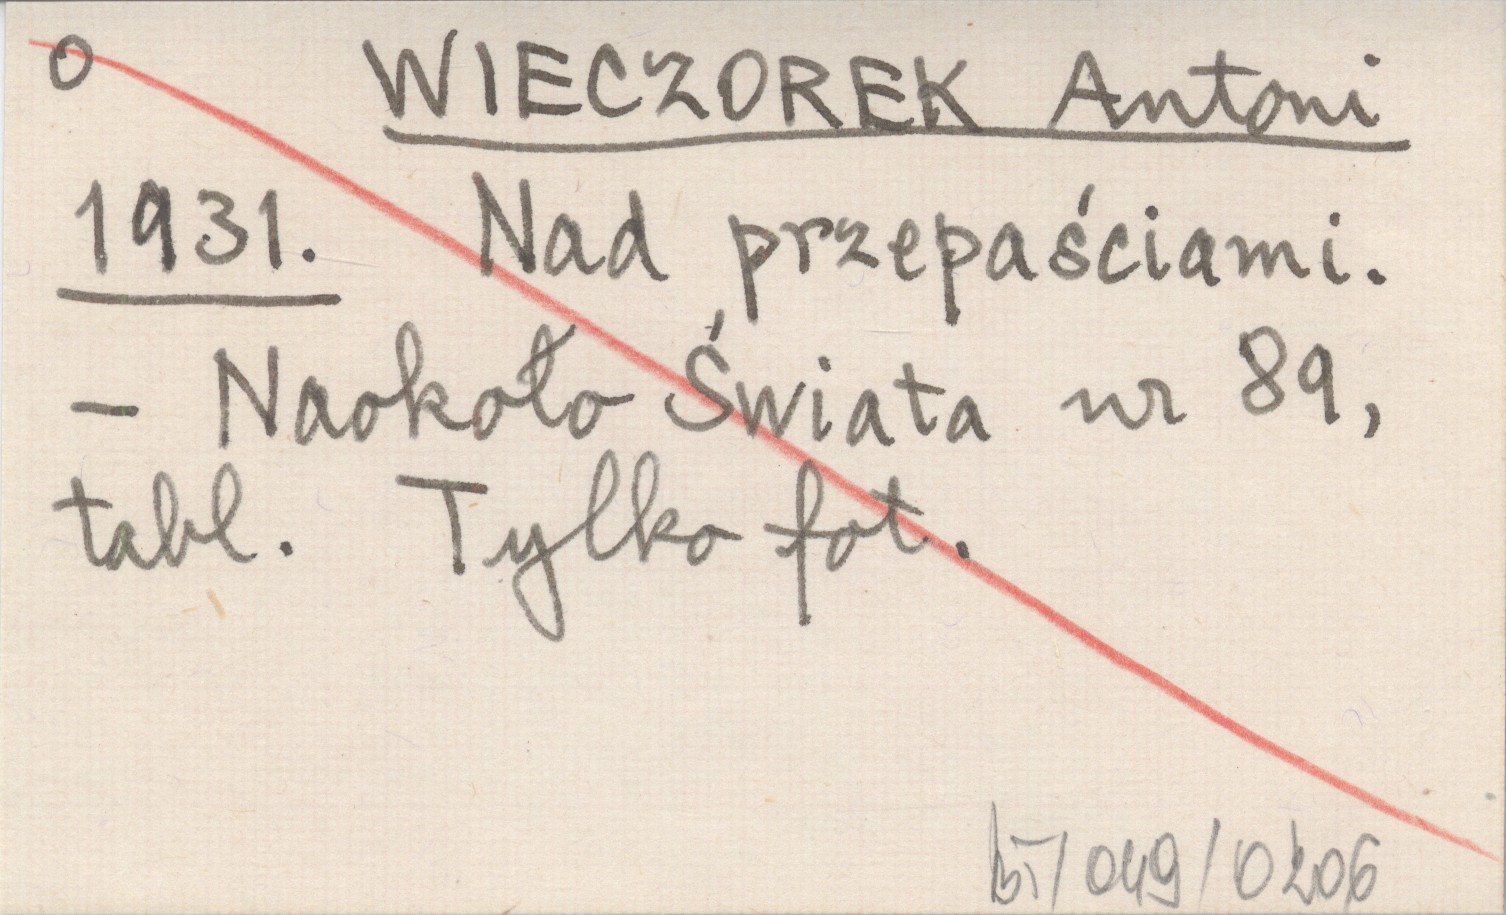 O WIECZOREK Antoni
1931. Nad przepaściami.
- Naokoło Świata nr 89,
tabl. Tylko fot.
/049/0206